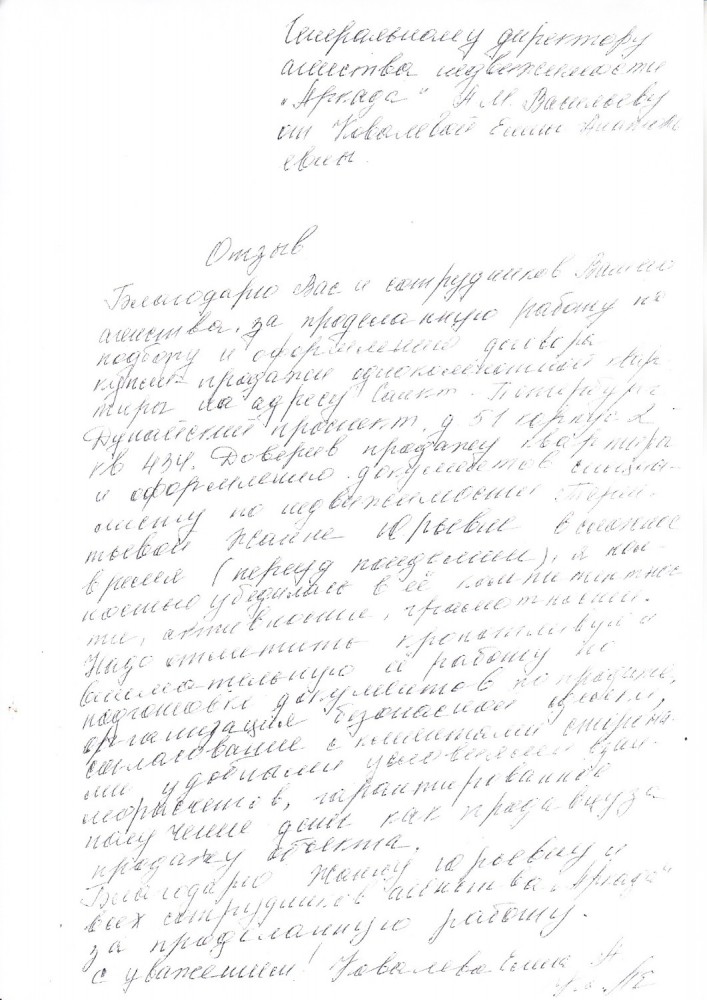 Генеральному директору
агенства недвижемности
"Аркада" А.М. Васильеву
от Ковалевой Елены
евны.
Отзыв
Благодарю Вас и сотрудников Вашего
агенства, за проделанную работу по
подбору и оформлению договора
купли-продажи однокомнатной квар-
тиры по адресу Санкт-Петербург
Дунайский проспект, д 51 корпус 2
кв 434. Доверив продажу квартиры
и оформлению документов специа-
листу по недвижимости
Жанне Юрьевне в сложное
время (период пандемии), я пол-
ностью убедилась в её компитентнос-
ти, активности, грамотности.
Надо отметить кропотливую и
внимательную её работу по
подготовки документов по продаже,
организация безопасной сделки,
согласование с клиентами сторона-
ми удобными условиями взаи-
морасчетов, гарантированное
получение денег как продавцу за
продажу объекта.
Благодарю Жанну Юрьевну и
всех сотрудников агенства "Аркада"
за проделанную работу.
С уважением! Ковалева Елена А